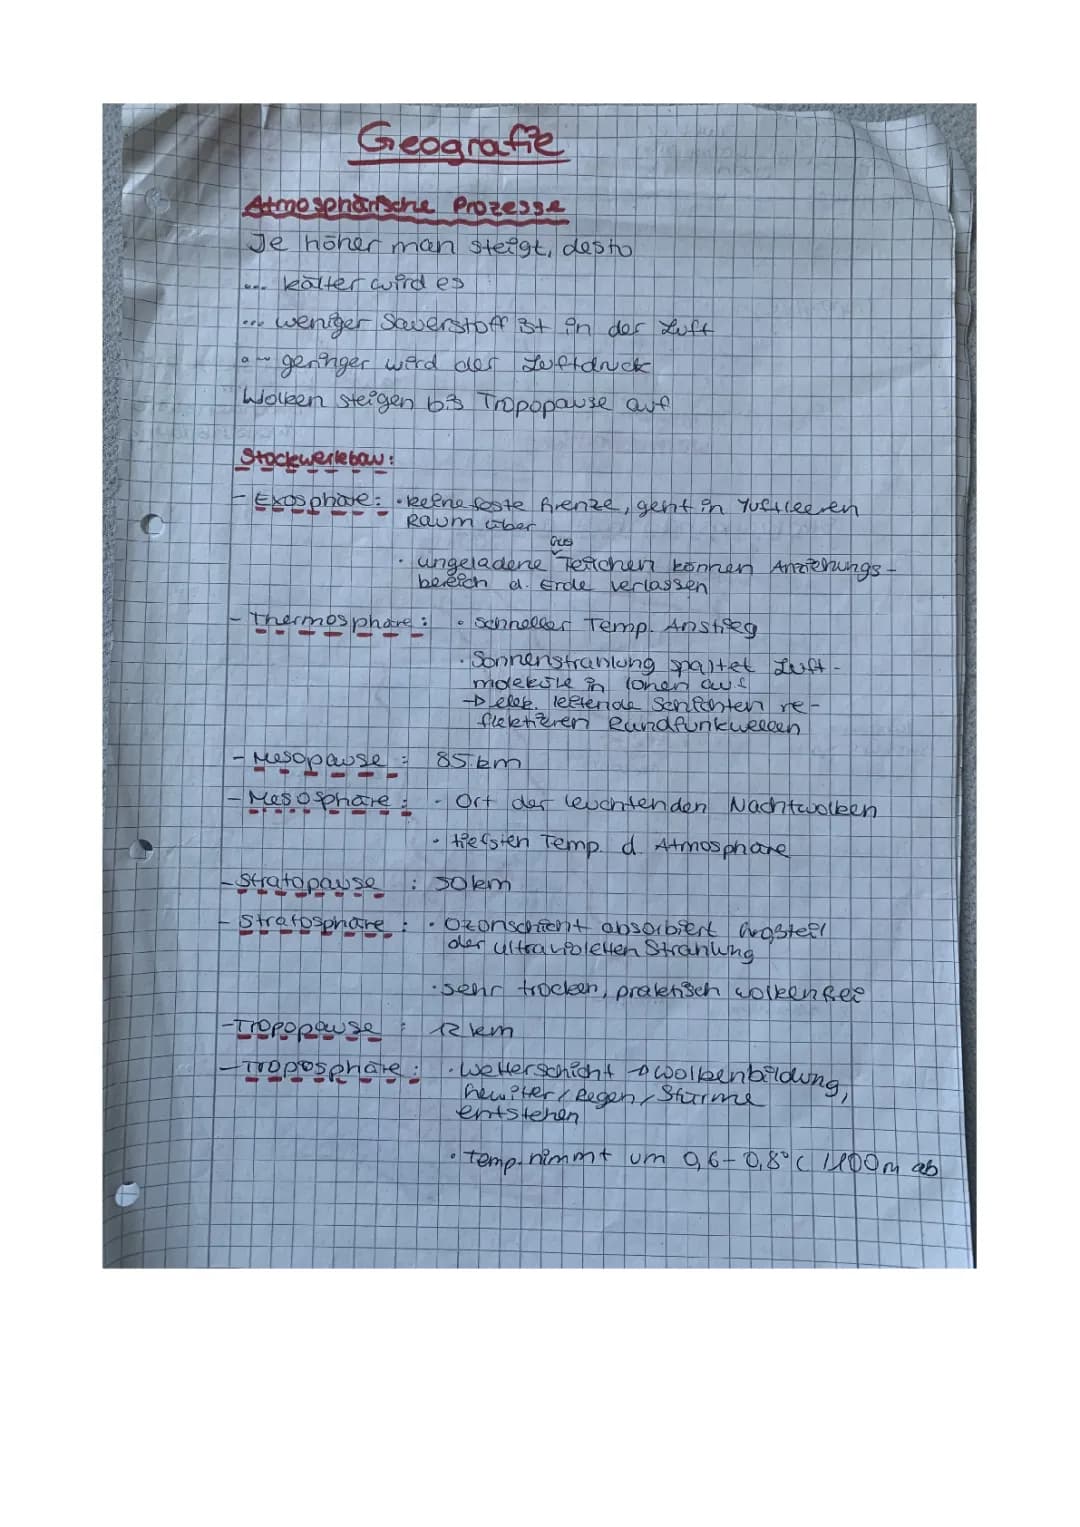 Geografie
Atmosphärische Prozesse
Je höher man steigt, desto
... kälter wird es
... weniger Sauerstoff ist in der Luft
... geringer wird der Luftdruck
Wolken steigen bis Tropopause auf
Stockwerkbau:
- Exosphäre: · keine feste Grenze, geht in luftleeren
Raum über
Gas
· ungeladene Teilchen können Anziehungs-
bereich d. Erde verlassen
- Thermosphäre: · schneller Temp. Anstieg
· Sonnenstrahlung spaltet Luft-
moleküle in Ionen auf
→ elek. leitende Schichten re-
flektieren Rundfunkwellen
- Mesopause: 85 km
- Mesosphäre: · Ort der leuchtenden Nachtwolken
· tiefsten Temp. d. Atmosphäre
- Stratopause: 50 km
- Stratosphäre: · Ozonschicht absorbiert Großteil
der ultravioletten Strahlung
· sehr trocken, praktisch wolkenfrei
- Tropopause: 12 km
- Troposphäre: · Wetterschicht → Wolkenbildung,
Gewitter, Regen, Stürme
entstehen
· Temp. nimmt um 0,6-0,8°C /100m ab